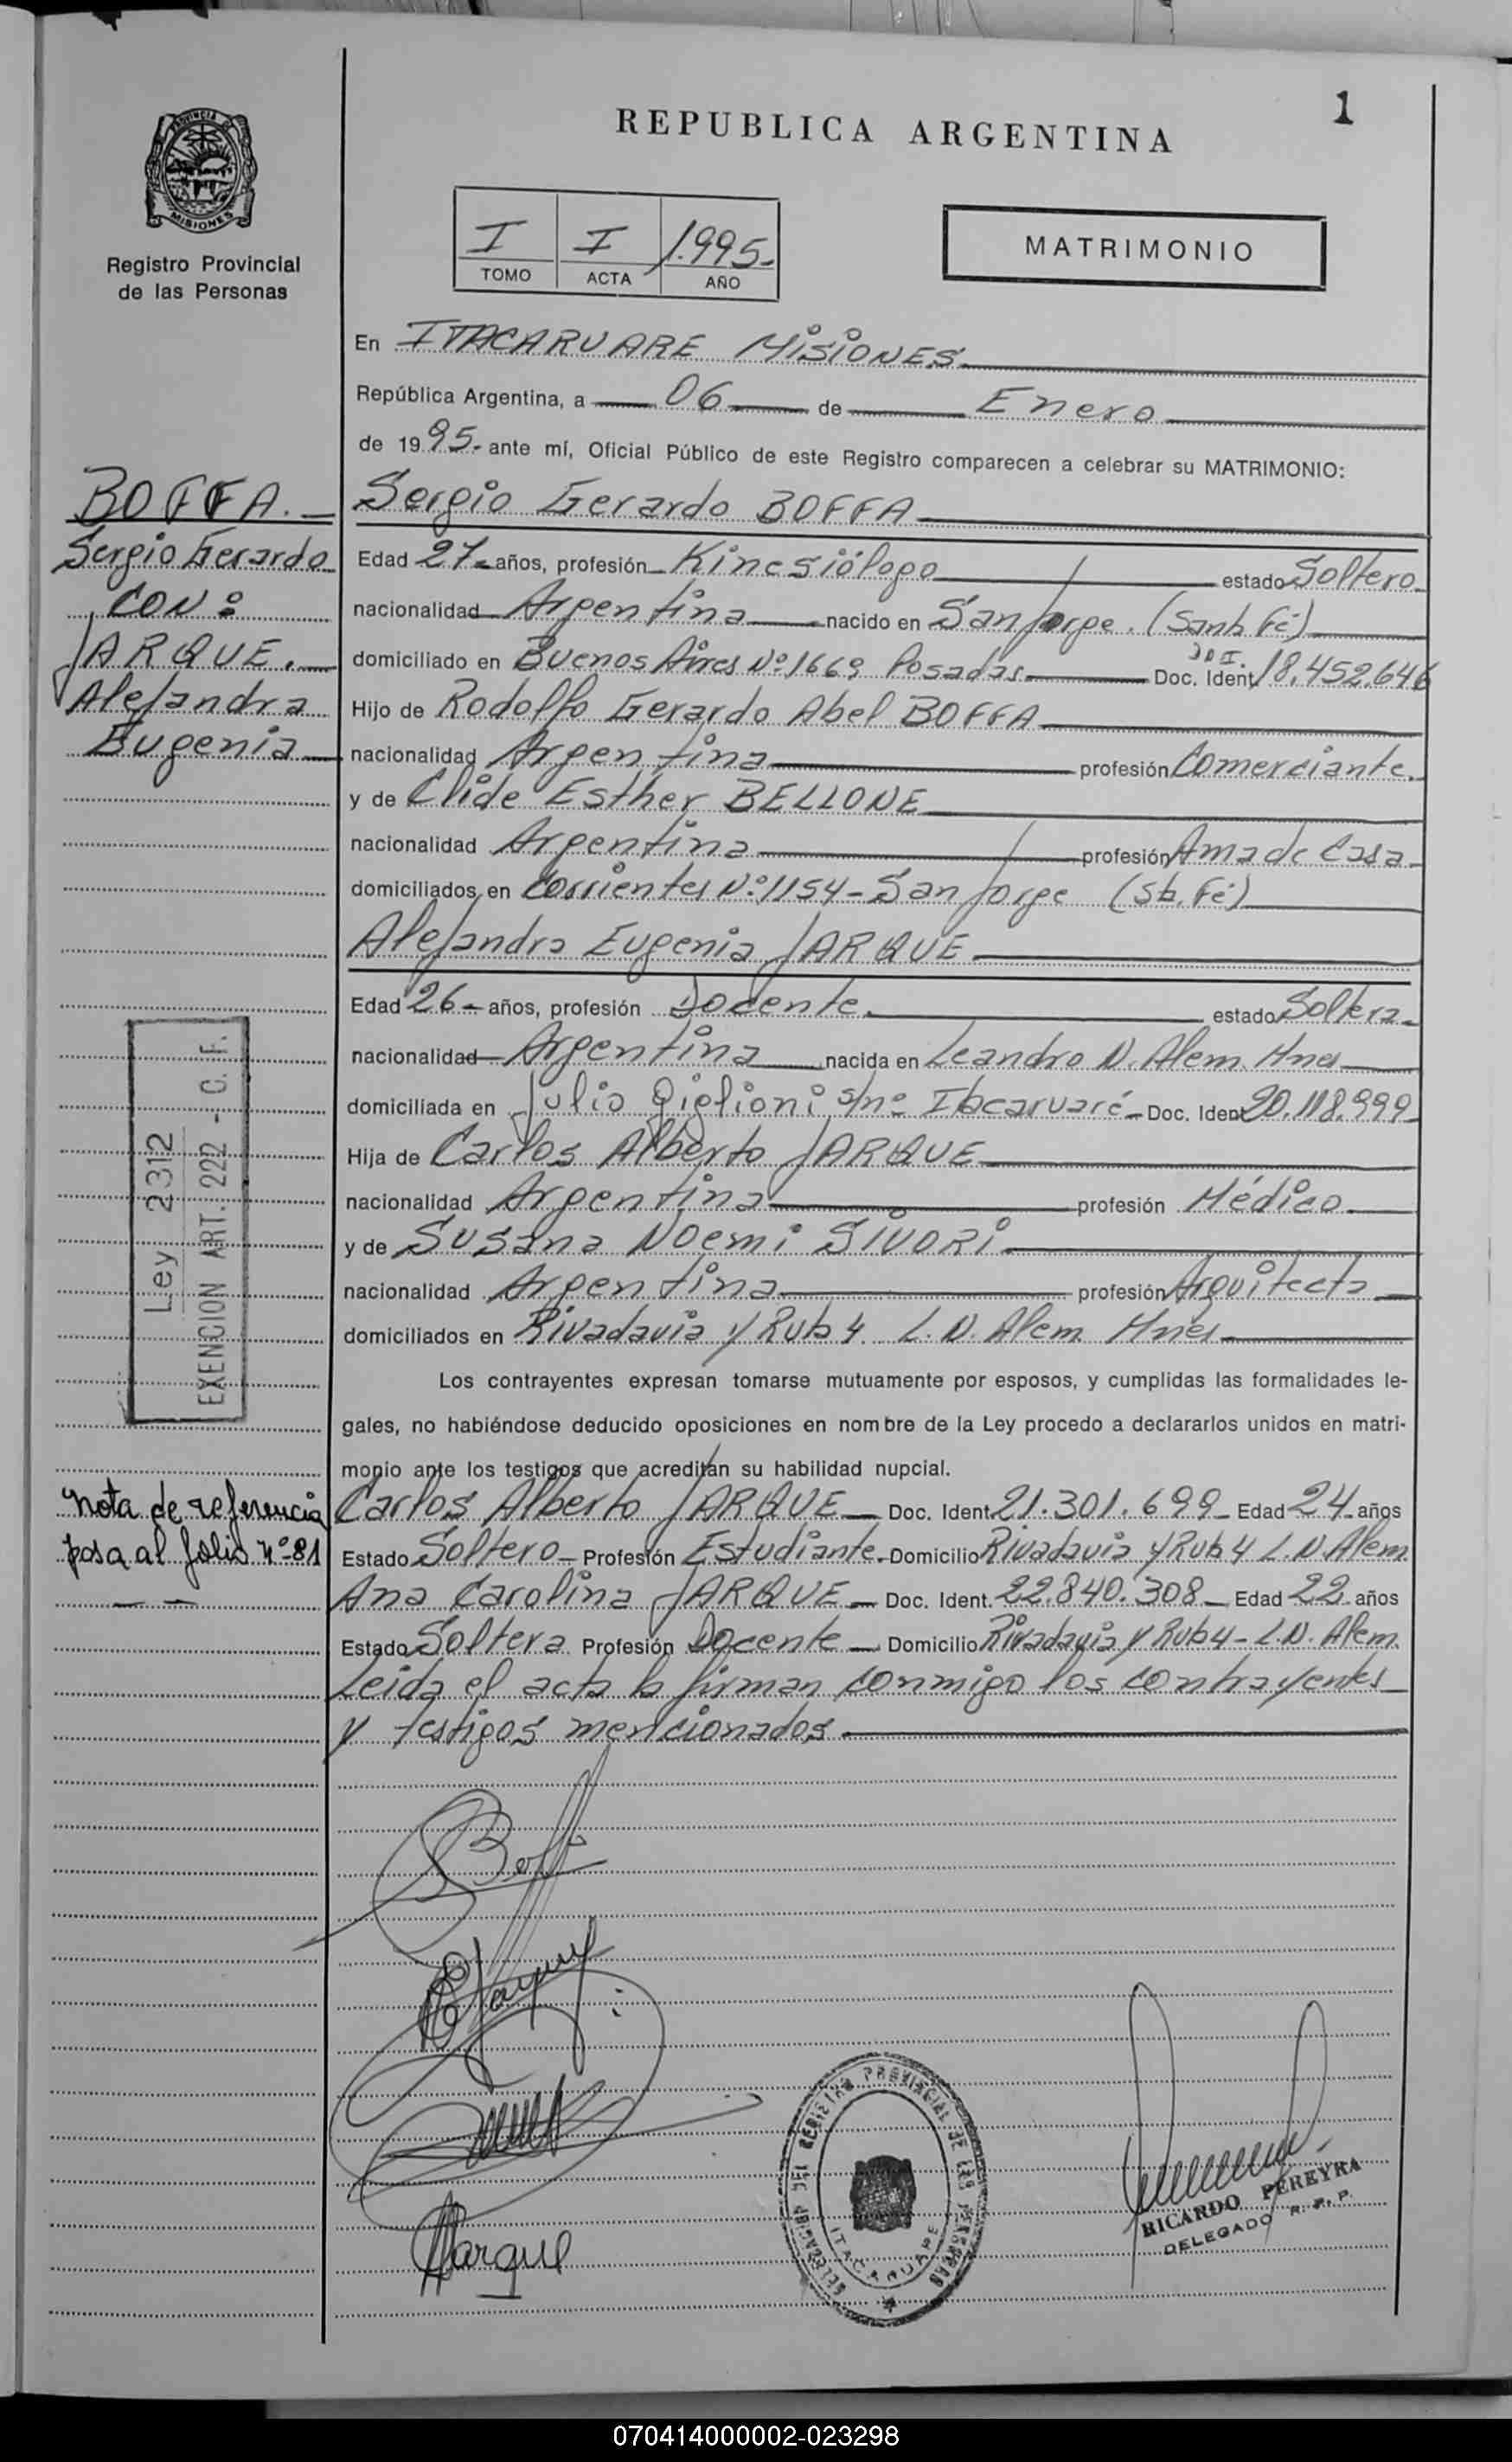 1
REPUBLICA ARGENTINA
PROVINCIA DE
MISIONES
Registro Provincial
de las Personas
I I 1.995.-
TOMO ACTA AÑO
MATRIMONIO
En ITACARUARE MISIONES
República Argentina, a 06 de Enero
de 1995.- ante mí, Oficial Público de este Registro comparecen a celebrar su MATRIMONIO:
BOFFA.-
Sergio Gerardo
CON:
JARQUE.
Alejandra
Eugenia
Sergio Gerardo BOFFA
Edad 27 años, profesión Kinesiólogo estado Soltero
nacionalidad Argentina nacido en San Jorge. (Santa Fé)
domiciliado en Buenos Aires Nº 1669 Posadas Doc. Ident. 18.452.646
Hijo de Rodolfo Gerardo Abel BOFFA
nacionalidad Argentina profesión Comerciante.
y de Clide Esther BELLONE
nacionalidad Argentina profesión Ama de Casa
domiciliados en Corrientes Nº 1154 - San Jorge (Sta. Fé)
Alejandra Eugenia JARQUE
Edad 26 años, profesión Docente estado Soltera
nacionalidad Argentina nacida en Leandro N. Alem. Mnes
domiciliada en Julio Giglioni s/nº Itacaruaré Doc. Ident 20.118.999
Hija de Carlos Alberto JARQUE
nacionalidad Argentina profesión Médico
y de Susana Noemi SIVORI
nacionalidad Argentina profesión Arquitecta
domiciliados en Rivadavia y Ruta 4 L. N. Alem Mnes
Ley 2312
EXENCION ART. 222 - C. F.
Los contrayentes expresan tomarse mutuamente por esposos, y cumplidas las formalidades le-
gales, no habiéndose deducido oposiciones en nombre de la Ley procedo a declararlos unidos en matri-
monio ante los testigos que acreditan su habilidad nupcial.
Nota de referencia
pasa al folio nº 81
Carlos Alberto JARQUE Doc. Ident. 21.301.699 Edad 24 años
Estado Soltero Profesión Estudiante Domicilio Rivadavia y Ruta 4 L.N. Alem
Ana Carolina JARQUE Doc. Ident. 22.840.308 Edad 22 años
Estado Soltera Profesión Docente Domicilio Rivadavia y Ruta 4 - L.N. Alem
Leida el acta la firman conmigo los contrayentes
y testigos mencionados
Jarque
DELEGACION DEL REGISTRO PROVINCIAL DE LAS PERSONAS
ITACARUARE
RICARDO PEREYRA
DELEGADO R. P. P.
070414000002-023298